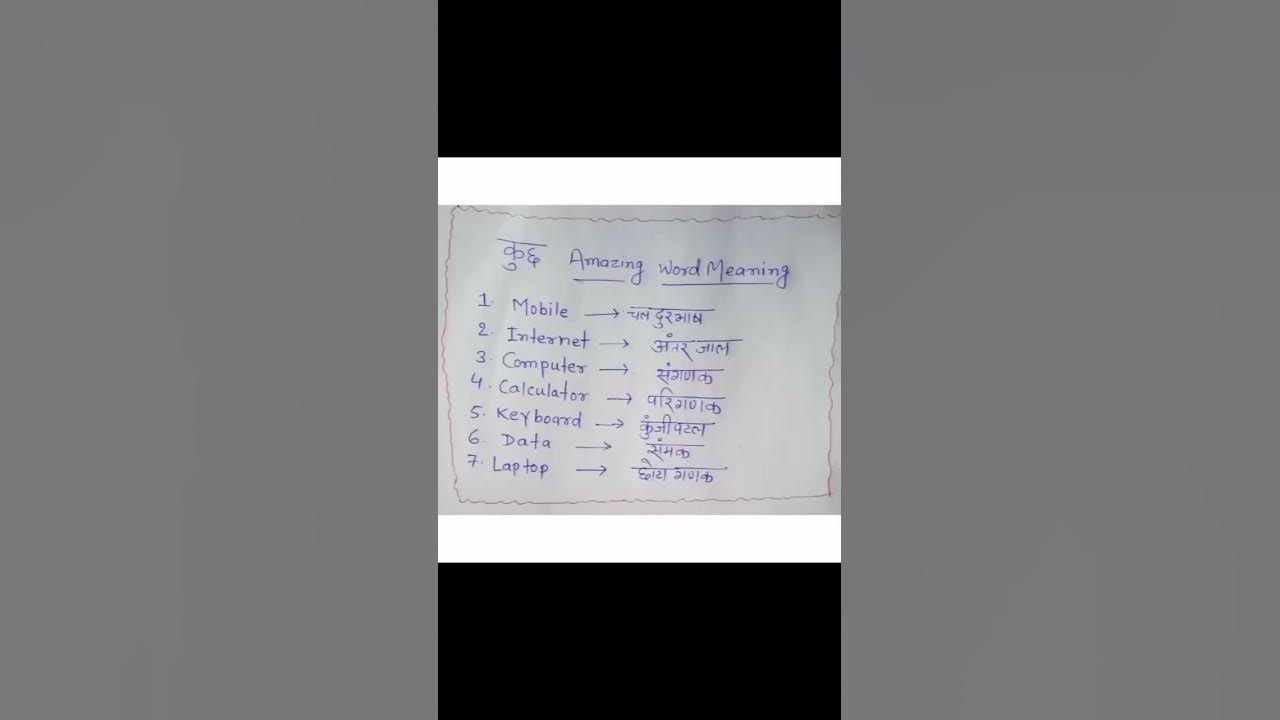 कुछ Amazing Word Meaning
1. Mobile → चल दुरभाष
2. Internet → अंतर जाल
3. Computer → संगणक
4. Calculator → परिगणक
5. Keyboard → कुंजीपटल
6. Data → संमक
7. Laptop → छोटा गणक